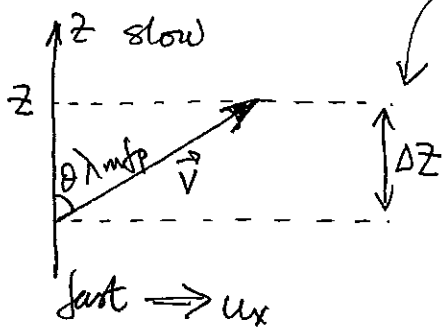 z slow
z
θ λmfp
v⃗
Δz
fast ⟹ ux